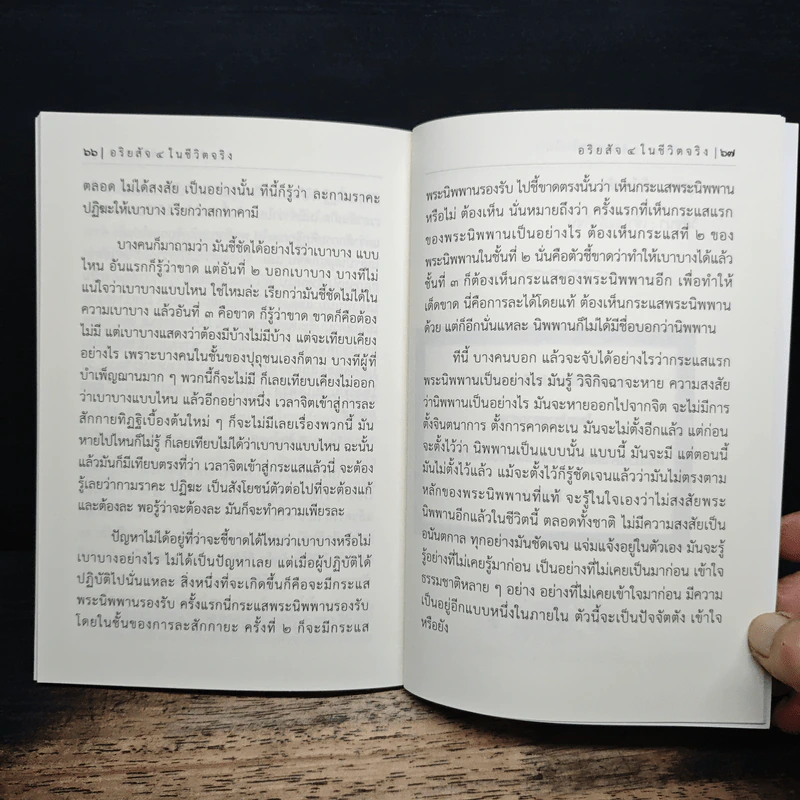 ๖๖ | อริยสัจ ๔ ในชีวิตจริง
ตลอด ไม่ได้สงสัย เป็นอย่างนั้น ทีนี้ก็รู้ว่า ละกามราคะ
ปฏิฆะให้เบาบาง เรียกว่าสกทาคามี
บางคนก็มาถามว่า มันชี้ชัดได้อย่างไรว่าเบาบาง แบบ
ไหน อันแรกก็รู้ว่าขาด แต่อันที่ ๒ บอกเบาบาง บางทีไม่
แน่ใจว่าเบาบางแบบไหน ใช่ไหมล่ะ เรียกว่ามันชี้ชัดไม่ได้ใน
ความเบาบาง แล้วอันที่ ๓ คือขาด ก็รู้ว่าขาด ขาดก็คือต้อง
ไม่มี แต่เบาบางแสดงว่าต้องมีบ้างไม่มีบ้าง แต่จะเทียบเคียง
อย่างไร เพราะบางคนในชั้นของปุถุชนเองก็ตาม บางทีผู้ที่
บำเพ็ญฌานมาก ๆ พวกนี้ก็จะไม่มี ก็เลยเทียบเคียงไม่ออก
ว่าเบาบางแบบไหน แล้วอีกอย่างหนึ่ง เวลาจิตเข้าสู่การละ
สักกายทิฏฐิเบื้องต้นใหม่ ๆ ก็จะไม่มีเลยเรื่องพวกนี้ มัน
หายไปไหนก็ไม่รู้ ก็เลยเทียบไม่ได้ว่าเบาบางแบบไหน ฉะนั้น
แล้วมันก็มีเทียบตรงที่ว่า เวลาจิตเข้าสู่กระแสแล้วนี่ จะต้อง
รู้เลยว่ากามราคะ ปฏิฆะ เป็นสังโยชน์ตัวต่อไปที่จะต้องแก้
และต้องละ พอรู้ว่าจะต้องละ มันก็จะทำความเพียรละ
ปัญหาไม่ได้อยู่ที่ว่าจะชี้ขาดได้ไหมว่าเบาบางหรือไม่
เบาบางอย่างไร ไม่ได้เป็นปัญหาเลย แต่เมื่อผู้ปฏิบัติได้
ปฏิบัติไปนั่นแหละ สิ่งหนึ่งที่จะเกิดขึ้นก็คือจะมีกระแส
พระนิพพานรองรับ ครั้งแรกนี่กระแสพระนิพพานรองรับ
โดยในชั้นของการละสักกายะ ครั้งที่ ๒ ก็จะมีกระแส
อริยสัจ ๔ ในชีวิตจริง | ๖๗
พระนิพพานรองรับ ไปชี้ขาดตรงนั้นว่า เห็นกระแสพระนิพพาน
หรือไม่ ต้องเห็น นั่นหมายถึงว่า ครั้งแรกที่เห็นกระแสแรก
ของพระนิพพานเป็นอย่างไร ต้องเห็นกระแสที่ ๒ ของ
พระนิพพานในชั้นที่ ๒ นั่นคือตัวชี้ขาดว่าทำให้เบาบางได้แล้ว
ชั้นที่ ๓ ก็ต้องเห็นกระแสของพระนิพพานอีก เพื่อทำให้
เด็ดขาด นี่คือการละได้โดยแท้ ต้องเห็นกระแสพระนิพพาน
ด้วย แต่ก็อีกนั่นแหละ นิพพานก็ไม่ได้มีชื่อบอกว่านิพพาน
ทีนี้ บางคนบอก แล้วจะจับได้อย่างไรว่ากระแสแรก
พระนิพพานเป็นอย่างไร มันรู้ วิจิกิจฉาจะหาย ความสงสัย
ว่านิพพานเป็นอย่างไร มันจะหายออกไปจากจิต จะไม่มีการ
ตั้งจินตนาการ ตั้งการคาดคะเน มันจะไม่ตั้งอีกแล้ว แต่ก่อน
จะตั้งไว้ว่า นิพพานเป็นแบบนั้น แบบนี้ มันจะมี แต่ตอนนี้
มันไม่ตั้งไว้แล้ว แม้จะตั้งไว้ก็รู้ชัดเจนแล้วว่ามันไม่ตรงตาม
หลักของพระนิพพานที่แท้ จะรู้ในใจเองว่าไม่สงสัยพระ
นิพพานอีกแล้วในชีวิตนี้ ตลอดทั้งชาติ ไม่มีความสงสัยเป็น
อนันตกาล ทุกอย่างมันชัดเจน แจ่มแจ้งอยู่ในตัวเอง มันจะรู้
รู้อย่างที่ไม่เคยรู้มาก่อน เป็นอย่างที่ไม่เคยเป็นมาก่อน เข้าใจ
ธรรมชาติหลาย ๆ อย่าง อย่างที่ไม่เคยเข้าใจมาก่อน มีความ
เป็นอยู่อีกแบบหนึ่งในภายใน ตัวนี้จะเป็นปัจจัตตัง เข้าใจ
หรือยัง